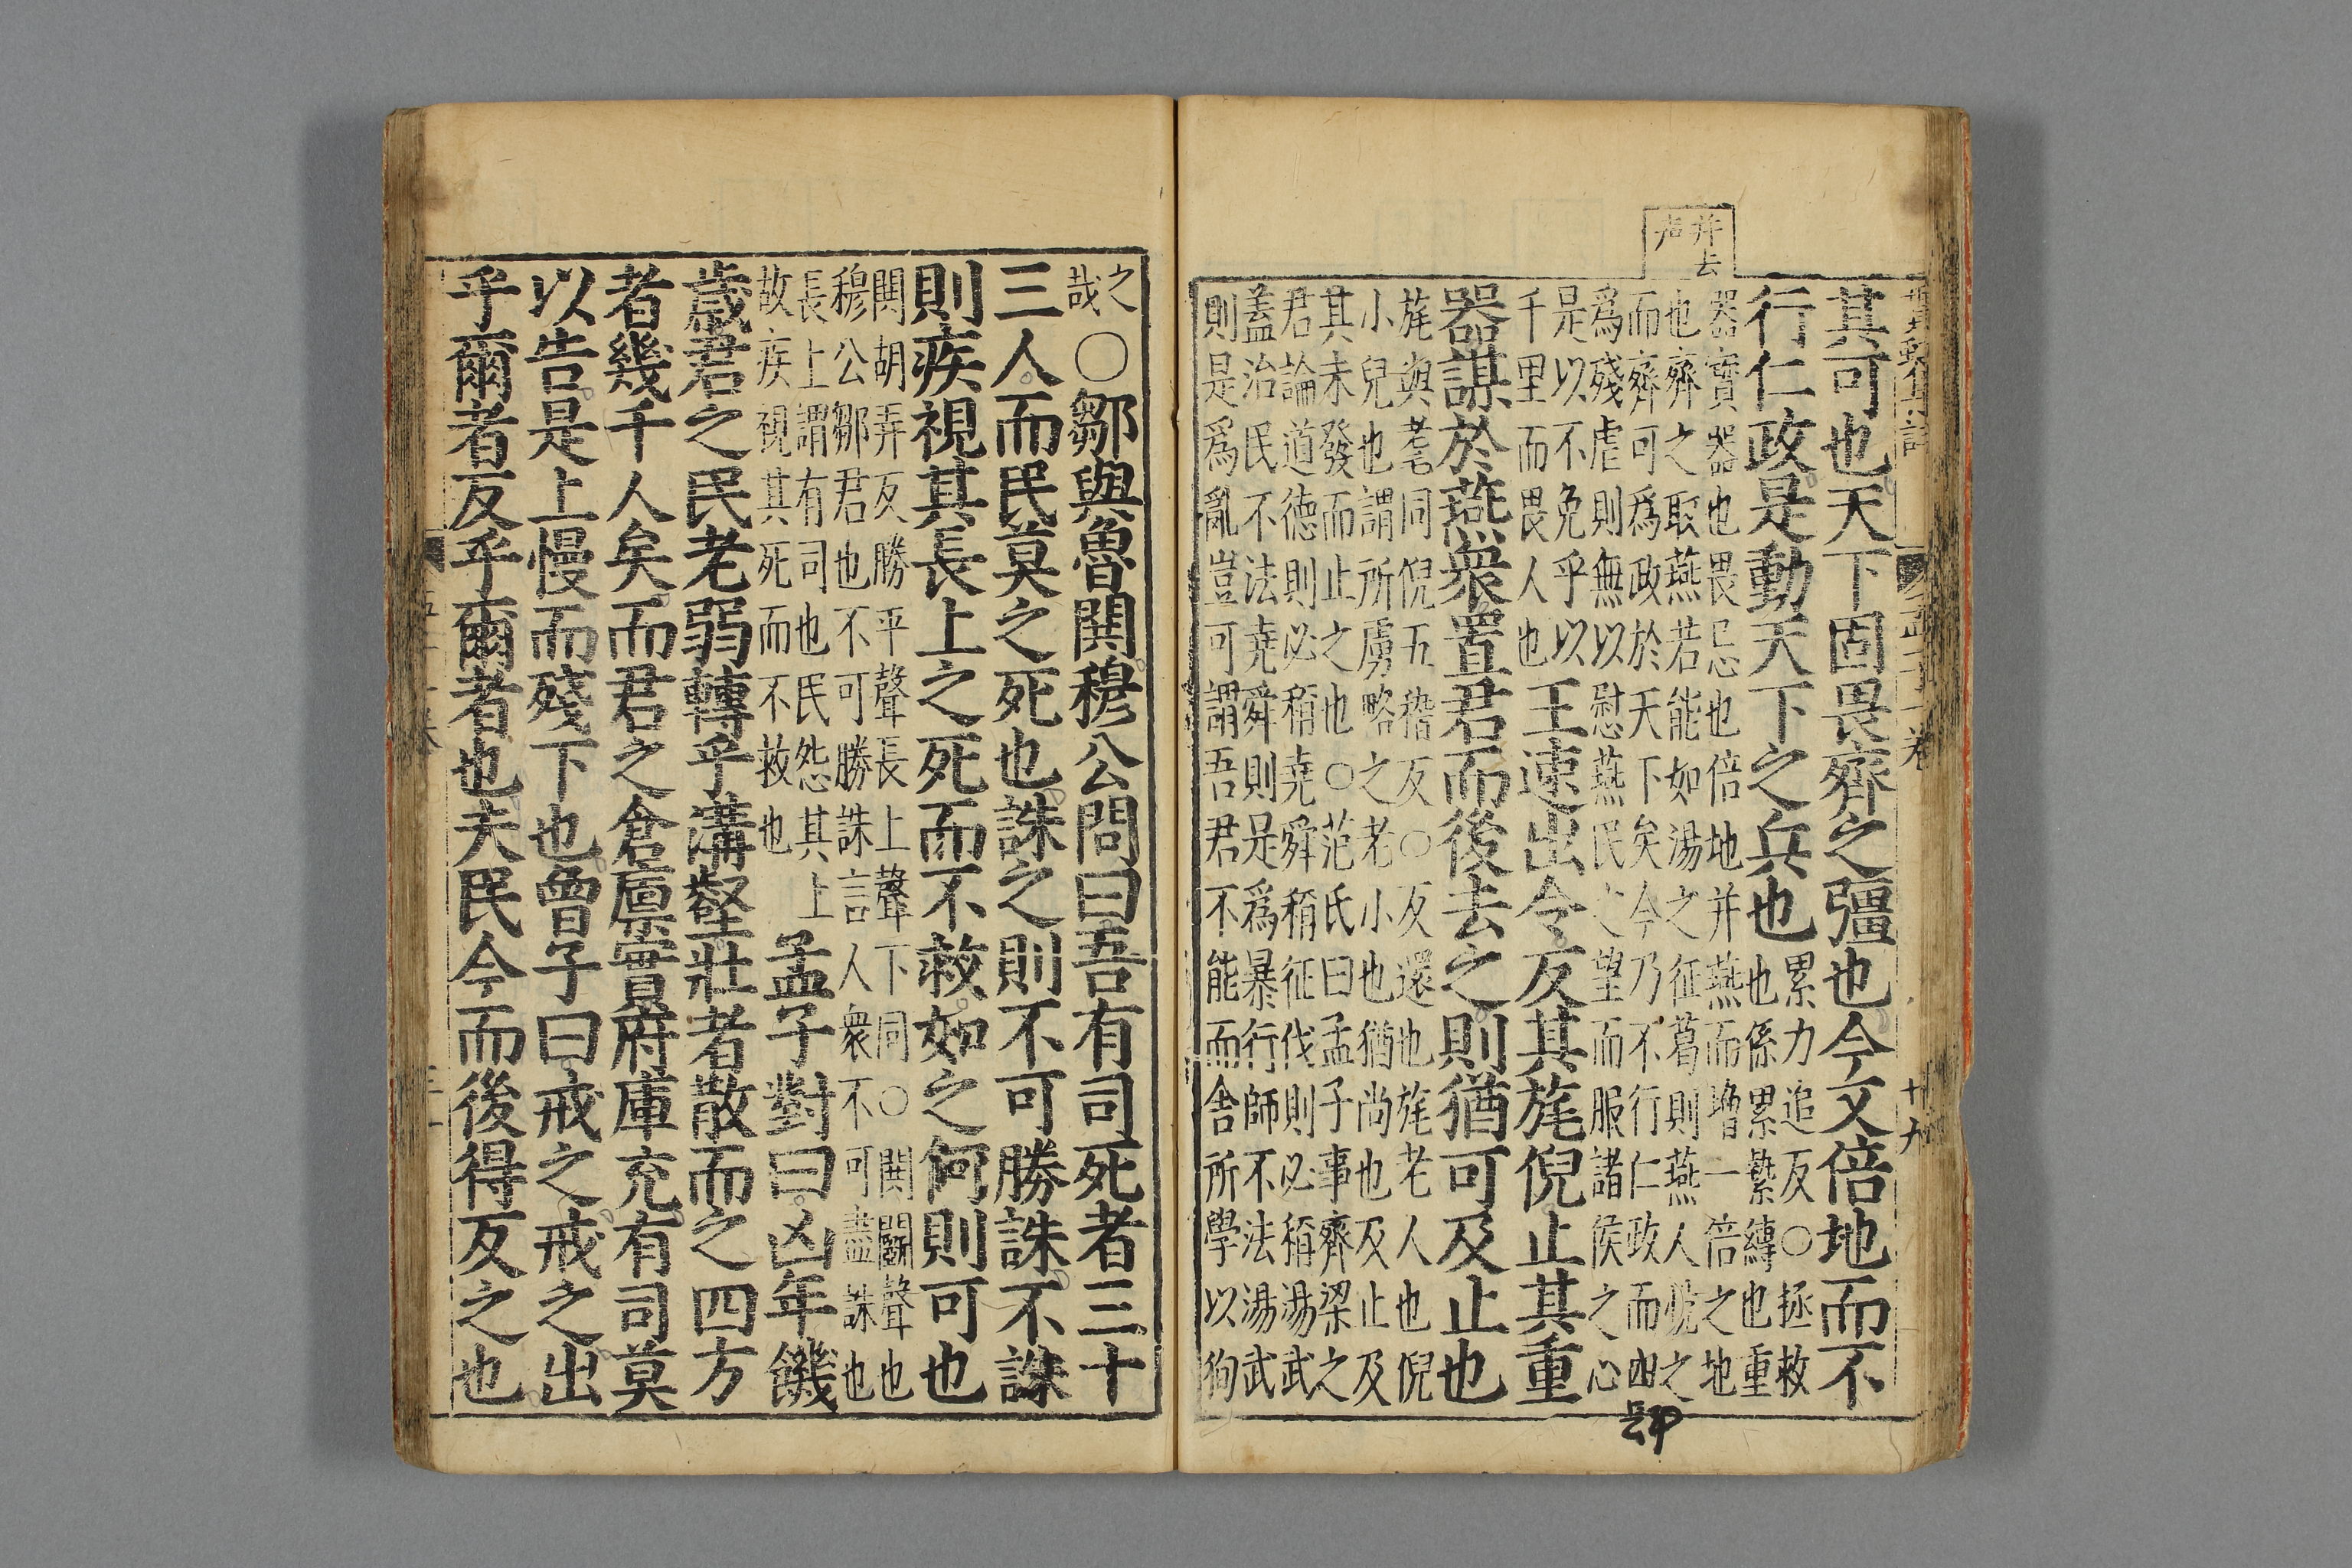 并去
声
其可也天下固畏齊之彊也今又倍地而不
行仁政是動天下之兵也
累力追反○拯救
也係累縶縛也重
器寶器也畏忌也倍地并燕而增一倍之地
也齊之取燕若能如湯之征葛則燕人悅之
而齊可爲政於天下矣今乃不行仁政而肆
爲殘虐則無以慰燕民之望而服諸侯之心
是以不免乎以
千里而畏人也
王速出令反其旄倪止其重
器謀於燕衆置君而後去之則猶可及止也
旄與耄同倪五稽反○反還也旄老人也倪
小兒也謂所虜略之老小也猶尚也及止及
其未發而止之也○范氏曰孟子事齊梁之
君論道德則必稱堯舜稱征伐則必稱湯武
蓋治民不法堯舜則是爲暴行師不法湯武
則是爲亂豈可謂吾君不能而舍所學以徇
十九
之
哉
○鄒與魯鬨穆公問曰吾有司死者三十
三人而民莫之死也誅之則不可勝誅不誅
則疾視其長上之死而不救如之何則可也
鬨胡弄反勝平聲長上聲下同○鬨鬬聲也
穆公鄒君也不可勝誅言人衆不可盡誅也
長上謂有司也民怨其上
故疾視其死而不救也
孟子對曰凶年饑
歲君之民老弱轉乎溝壑壯者散而之四方
者幾千人矣而君之倉廩實府庫充有司莫
以告是上慢而殘下也曾子曰戒之戒之出
乎爾者反乎爾者也夫民今而後得反之也